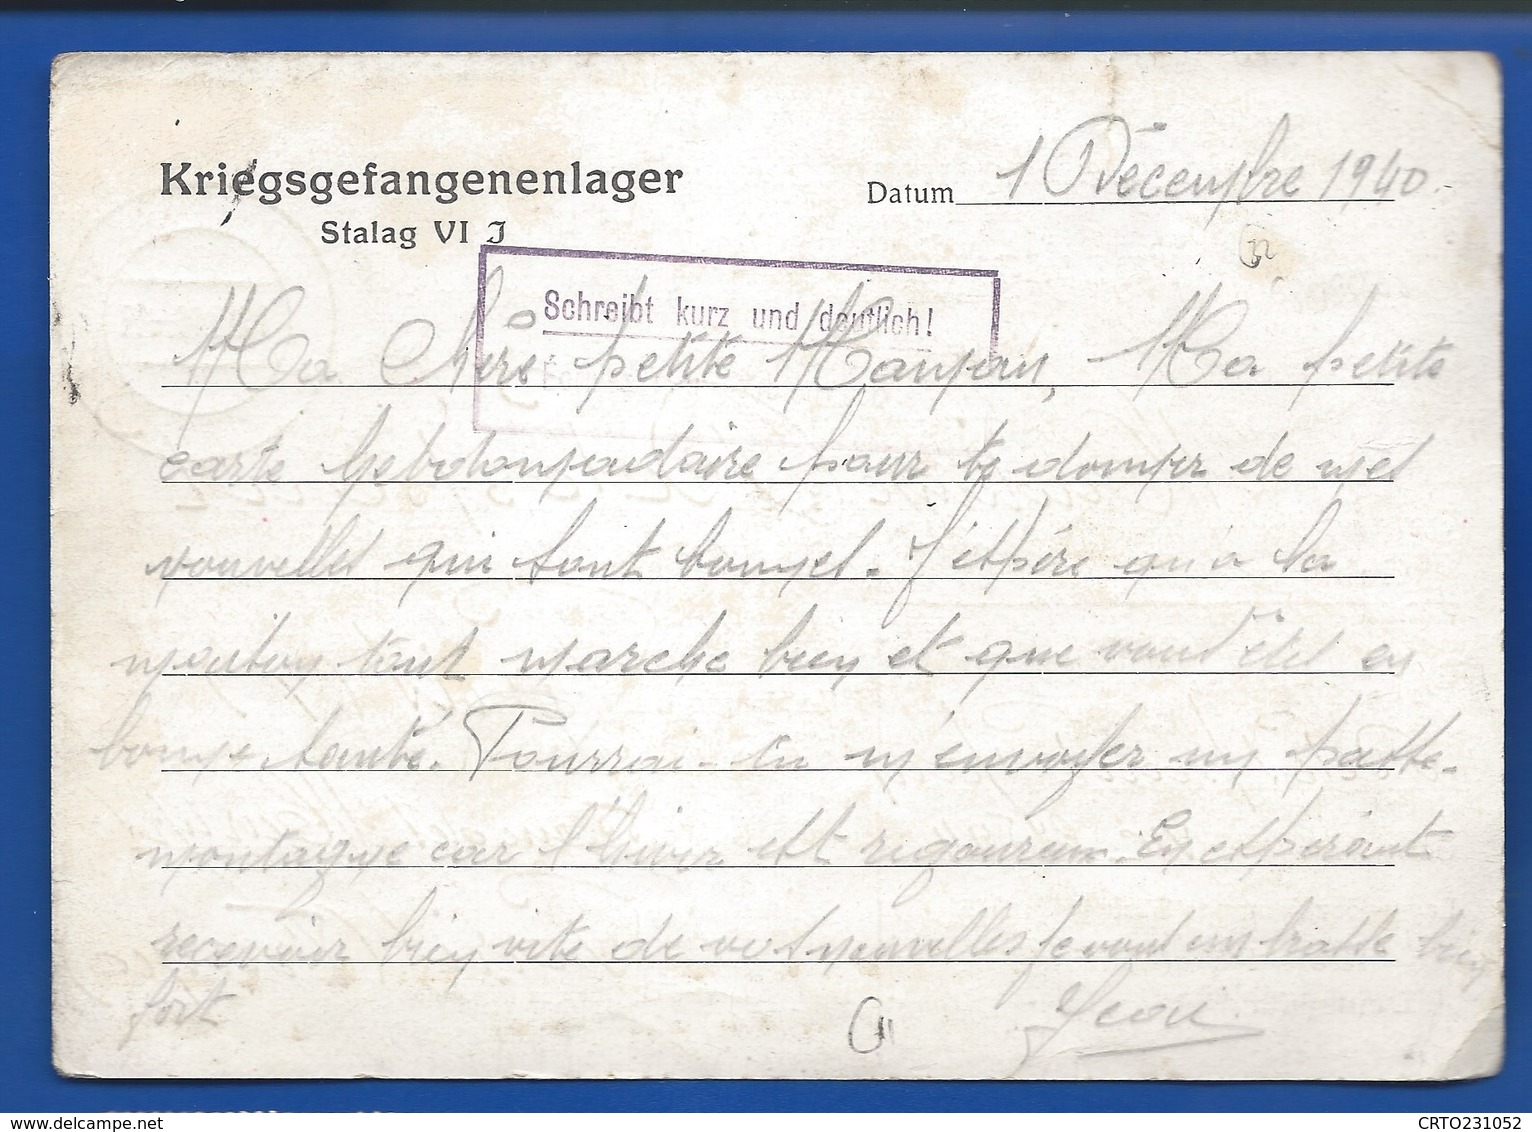 Kriegsgefangenenlager
Datum 1 Décembre 1940.
Stalag VI J
Schreibt kurz und deutlich!
Ma Chère petite Maman, Ma petite
carte hebdomadaire pour te donner de mes
nouvelles qui sont bonnes. J'espère qu'a la
maison tout marche bien et que vous êtes en
bonne santé. Pourrai-tu m'envoyer un passe-
montagne car l'hiver est rigoureux. En espérant
recevoir bien vite de vos nouvelles je vous embrasse bien
fort
CRTO231052